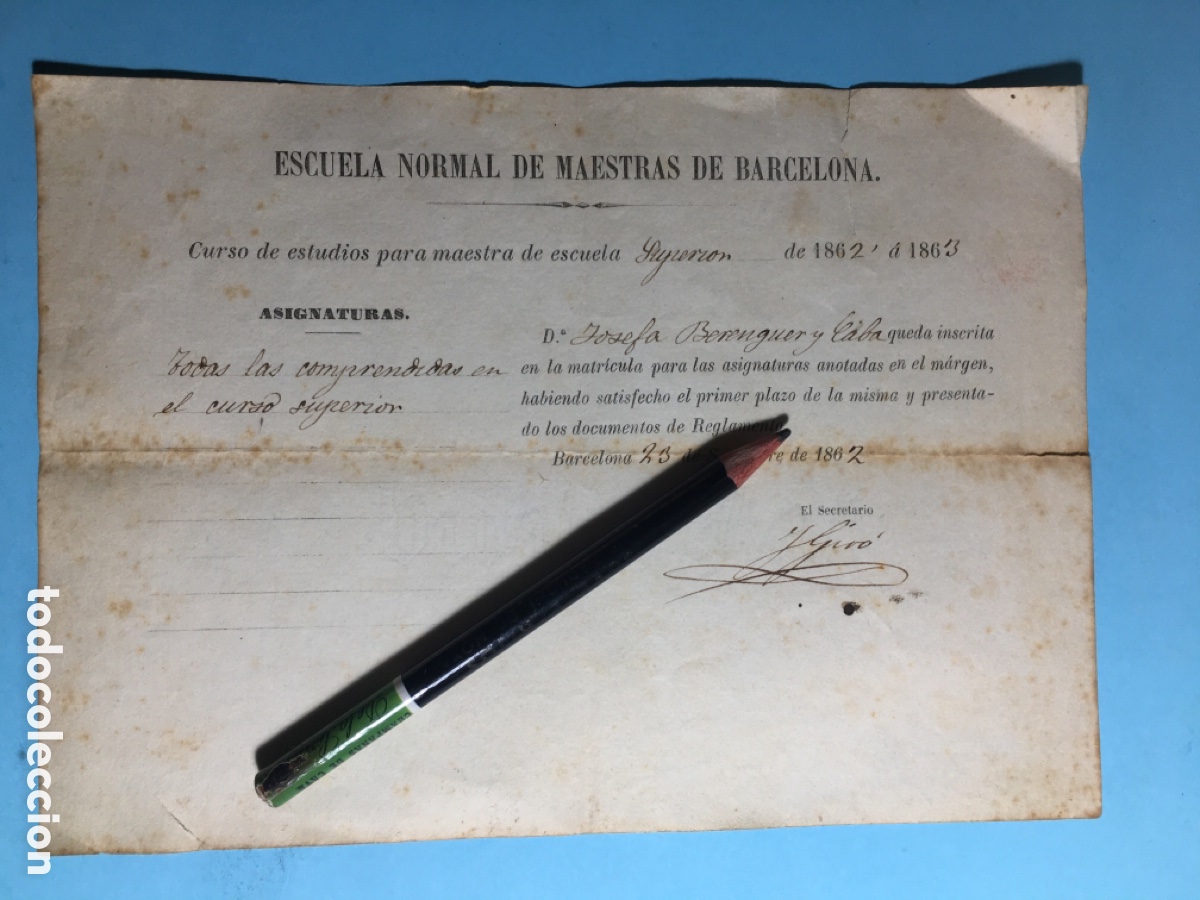 ESCUELA NORMAL DE MAESTRAS DE BARCELONA.
Curso de estudios para maestra de escuela Superior de 1862 á 1863
ASIGNATURAS.
todas las comprendidas en
el curso superior
D.ª Josefa Berenguer y Cába queda inscrita
en la matrícula para las asignaturas anotadas en el márgen,
habiendo satisfecho el primer plazo de la misma y presenta-
do los documentos de Reglamento
Barcelona 23 de re de 1862
El Secretario
J Giró
De la
todocoleccion